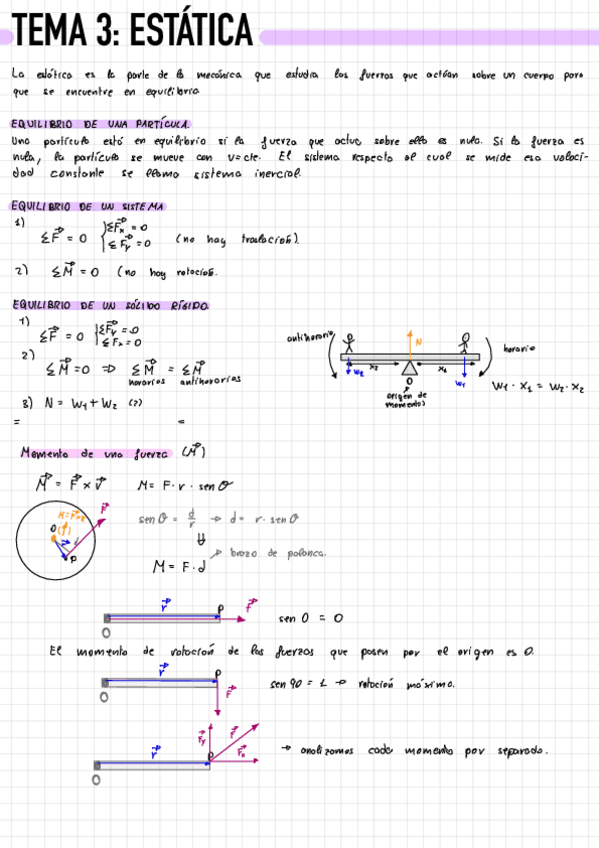 TEMA 3: ESTÁTICA
La estática es la parte de la mecánica que estudia las fuerzas que actúan sobre un cuerpo para
que se encuentre en equilibrio
EQUILIBRIO DE UNA PARTÍCULA.
Una partícula está en equilibrio si la fuerza que actua sobre ella es nula. Si la fuerza es
nula, la partícula se mueve con v=cte. El sistema respecto al cual se mide esa veloci-
dad constante se llama sistema inercial.
EQUILIBRIO DE UN SISTEMA
1)
ΣF⃗ = 0 { ΣF⃗x = 0
ΣF⃗y = 0 (no hay traslación).
2) ΣM⃗ = 0 (no hay rotación.
EQUILIBRIO DE UN SÓLIDO RÍGIDO
1)
ΣF⃗ = 0 { ΣF⃗y = 0
ΣF⃗x = 0
2)
ΣM⃗ = 0 ⇒ ΣM⃗ = ΣM⃗
horarios antihorarios
3) N = W1 + W2 (?)
= =
antihorario
N
horario
W2
x2
x1
W1
O
origen de
momentos
W1 · x1 = W2 · x2
Momento de una fuerza (M⃗)
M⃗ = F⃗ x r⃗ M = F · r · sen θ
F⃗
O
d
P
sen θ = d/r → d = r · sen θ
⇓
brazo de palanca.
M = F · d
r⃗
P
F⃗
O
sen 0 = 0
El momento de rotación de las fuerzas que pasen por el origen es 0.
r⃗
P
F⃗
O
sen 90 = 1 → rotación máxima.
F⃗y
F⃗
r⃗
P
F⃗x
O
→ analizamos cada momento por separado.